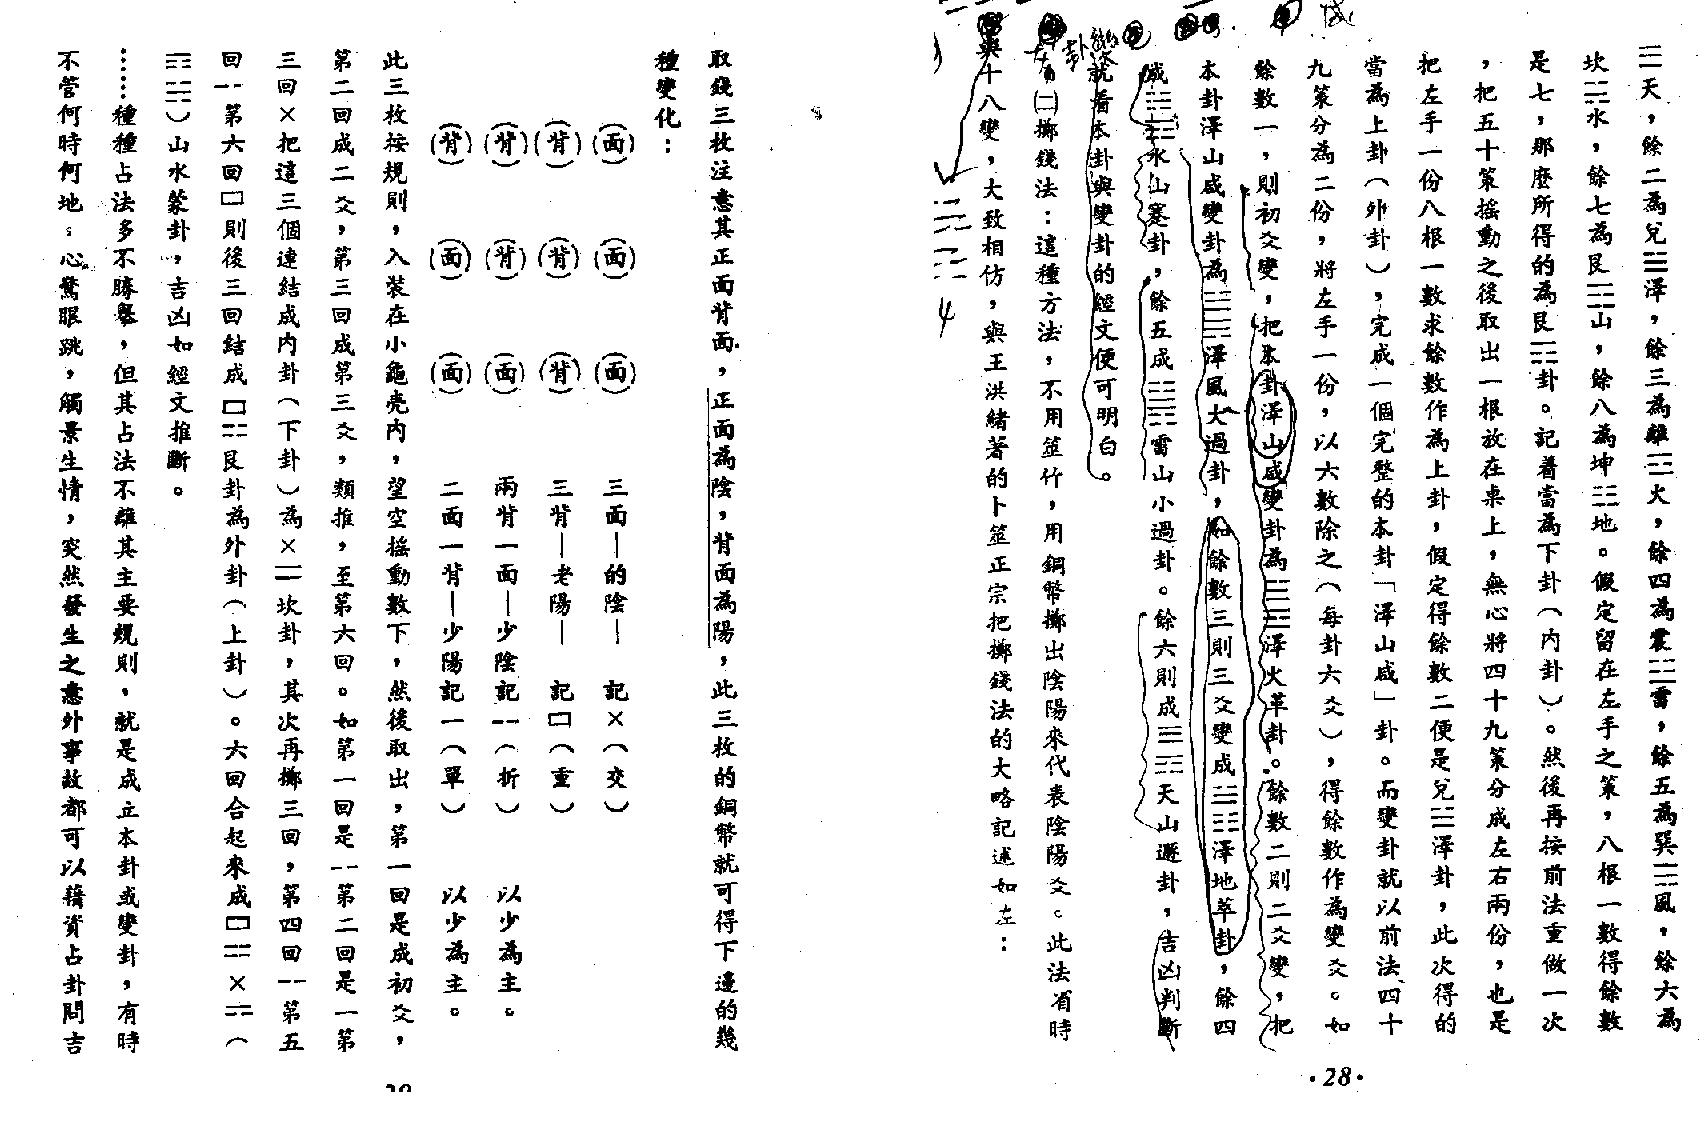 ☰天，餘二為兌☱澤，餘三為離☲火，餘四為震☳雷，餘五為巽☴風，餘六為
坎☵水，餘七為艮☶山，餘八為坤☷地。假定留在左手之策，八根一數得餘數
是七，那麼所得的為艮☶卦。記着當為下卦（內卦）。然後再按前法重做一次
，把五十策搖動之後取出一根放在桌上，無心將四十九策分成左右兩份，也是
把左手一份八根一數求餘數作為上卦，假定得餘數二便是兌☱澤卦，此次得的
當為上卦（外卦），完成一個完整的本卦「澤山咸」卦。而變卦就以前法四十
九策分為二份，將左手一份，以六數除之（每卦六爻），得餘數作為變爻。如
餘數一，則初爻變，把本卦澤山咸變卦為☱☲澤火革卦。餘數二則二爻變，把
本卦澤山咸變卦為☱☴澤風大過卦，如餘數三則三爻變成☱☷澤地萃卦，餘四
成☵☶水山蹇卦，餘五成☳☶雷山小過卦。餘六則成☰☶天山遯卦，吉凶判斷
就看本卦與變卦的經文便可明白。
㈡擲錢法：這種方法，不用筮竹，用銅幣擲出陰陽來代表陰陽爻。此法省時
與十八變，大致相仿，與王洪緒著的卜筮正宗把擲錢法的大略記述如左：
4
·28·
取錢三枚注意其正面背面，正面為陰，背面為陽，此三枚的銅幣就可得下邊的幾
種變化：
（面）（面）（面）三面—的陰—記×（交）
（背）（背）（背）三背—老陽—記□（重）
（背）（背）（面）兩背一面—少陰記--（折）以少為主。
（背）（面）（面）二面一背—少陽記一（單）以少為主。
此三枚按規則，入裝在小龜壳內，望空搖動數下，然後取出，第一回是成初爻，
第二回成二爻，第三回成第三爻，類推，至第六回。如第一回是--第二回是一第
三回×把這三個連結成內卦（下卦）為×☵坎卦，其次再擲三回，第四回--第五
回--第六回□則後三回結成□☷艮卦為外卦（上卦）。六回合起來成□☷×☵（
☶☵）山水蒙卦，吉凶如經文推斷。
……種種占法多不勝舉，但其占法不離其主要規則，就是成立本卦或變卦，有時
不管何時何地：心驚眼跳，觸景生情，突然發生之意外事故都可以藉資占卦問吉